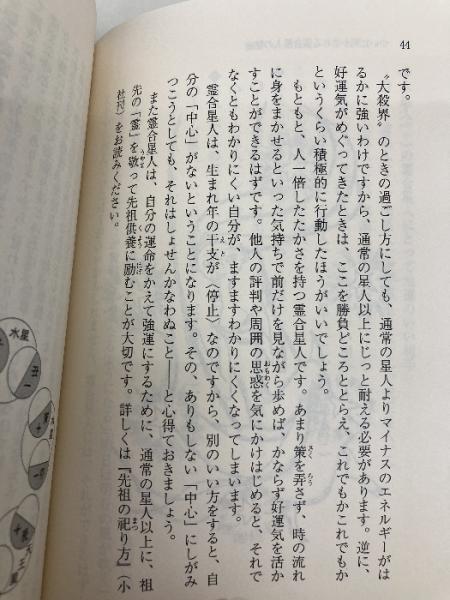 44
です。
“大殺界”のときの過ごし方にしても、通常の星人よりマイナスのエネルギーがは
るかに強いわけですから、通常の星人以上にじっと耐える必要があります。逆に、
好運気がめぐってきたときは、ここを勝負どころととらえ、これでもかこれでもか
というくらい積極的に行動したほうがいいでしょう。
もともと、人一倍したたかさを持つ霊合星人です。あまり策を弄さず、時の流れ
に身をまかせるといった気持ちで前だけを見ながら歩めば、かならず好運気を活か
すことができるはずです。他人の評判や周囲の思惑を気にかけはじめると、それで
なくともわかりにくい自分が、ますますわかりにくくなってしまいます。
霊合星人は、生まれ年の干支が〈停止〉なのですから、別のいい方をすると、自
分の「中心」がないということになります。その、ありもしない「中心」にしがみ
つこうとしても、それはしょせんかなわぬこと――と心得ておきましょう。
また霊合星人は、自分の運命をかえて強運にするために、通常の星人以上に、祖
先の「霊」を敬って先祖供養に励むことが大切です。詳しくは『先祖の祀り方』（小
社刊）をお読みください。
水星
丑
一
天王星